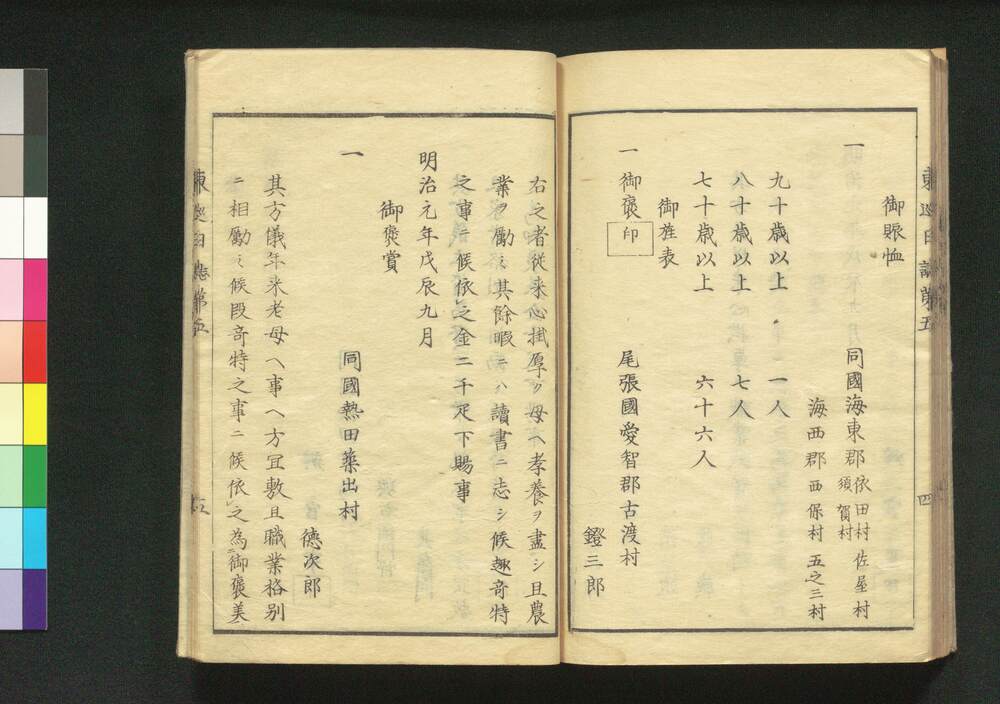 東巡日誌第五
四
御賑恤
一 同國海東郡 依田村 佐屋村
須賀村
海西郡 西保村 五之三村
九十歳以上 一人
八十歳以上 七人
七十歳以上 六十六人
御旌表
一 御褒印 尾張國愛智郡古渡村
鐙三郎
右之者從来心掛厚ク母ヘ孝養ヲ盡シ且農
業ヲ勵ミ其餘暇ニハ讀書ニ志シ候趣竒特
之事ニ候依之金二千疋下賜事
明治元年戊辰九月
御褒賞
一 同國熱田藥出村
德次郎
其方儀年来老母ヘ事ヘ方冝敷且職業格別
ニ相勵ミ候段竒特之事ニ候依之為御褒美
東巡日誌第五
五